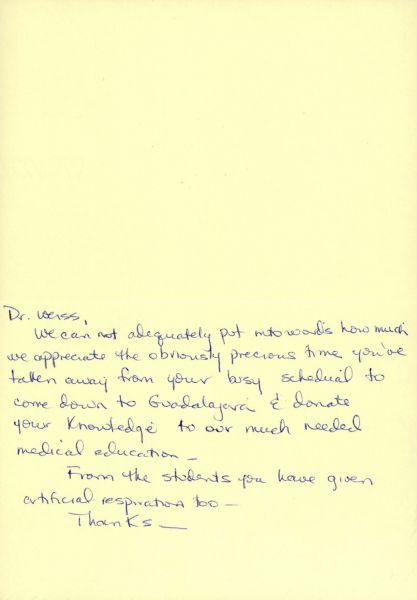 Dr. Weiss,
We can not adequately put into words how much
we appreciate the obviously precious time you've
taken away from your busy schedual to
come down to Guadalajara & donate
your Knowledge to our much needed
medical education –
From the students you have given
artificial respiration too –
Thanks —